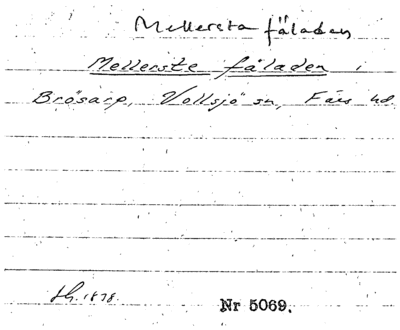 Mellersta fäladen
Mellerste fäladen i
Brösarp, Vollsjö sn, Färs hd.
1878.
Nr 5069.